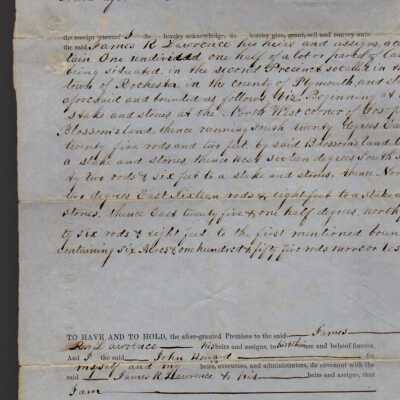 the receipt whereof I do hereby acknowledge, do hereby give, grant, sell and convey unto
the said James R Lawrence his heirs and assigns, a cer
tain One undivided one half of a lot or parcel of La
being situated in the second Precinct so called in th
town of Rochester in the county of Plymouth, and st
aforesaid and bounded as follows Viz. Beginning at
stake and stones at the North West corner of Josep
Blossom's land, thence running South twenty degrees Eas
twenty five rods and two feet, by said Blossom's land to
a stake and stones, thence West sixteen degrees South
ty two rods & six feet to a stake and stones, thence Nor
two degrees East Sixteen rods & eight feet to a stake a
stones, thence East twenty five & one half degrees north
ty six rods & eight feet to the first mentioned boun
containing six Acres & one hundred & fifty five rods more or les
TO HAVE AND TO HOLD, the afore-granted Premises to the said James
R Lawrence his heirs and assigns, to his use and behoof forever.
And I the said John Howard for
myself and my heirs, executors, and administrators, do covenant with the
said James R Lawrence & his heirs and assigns, that
I am